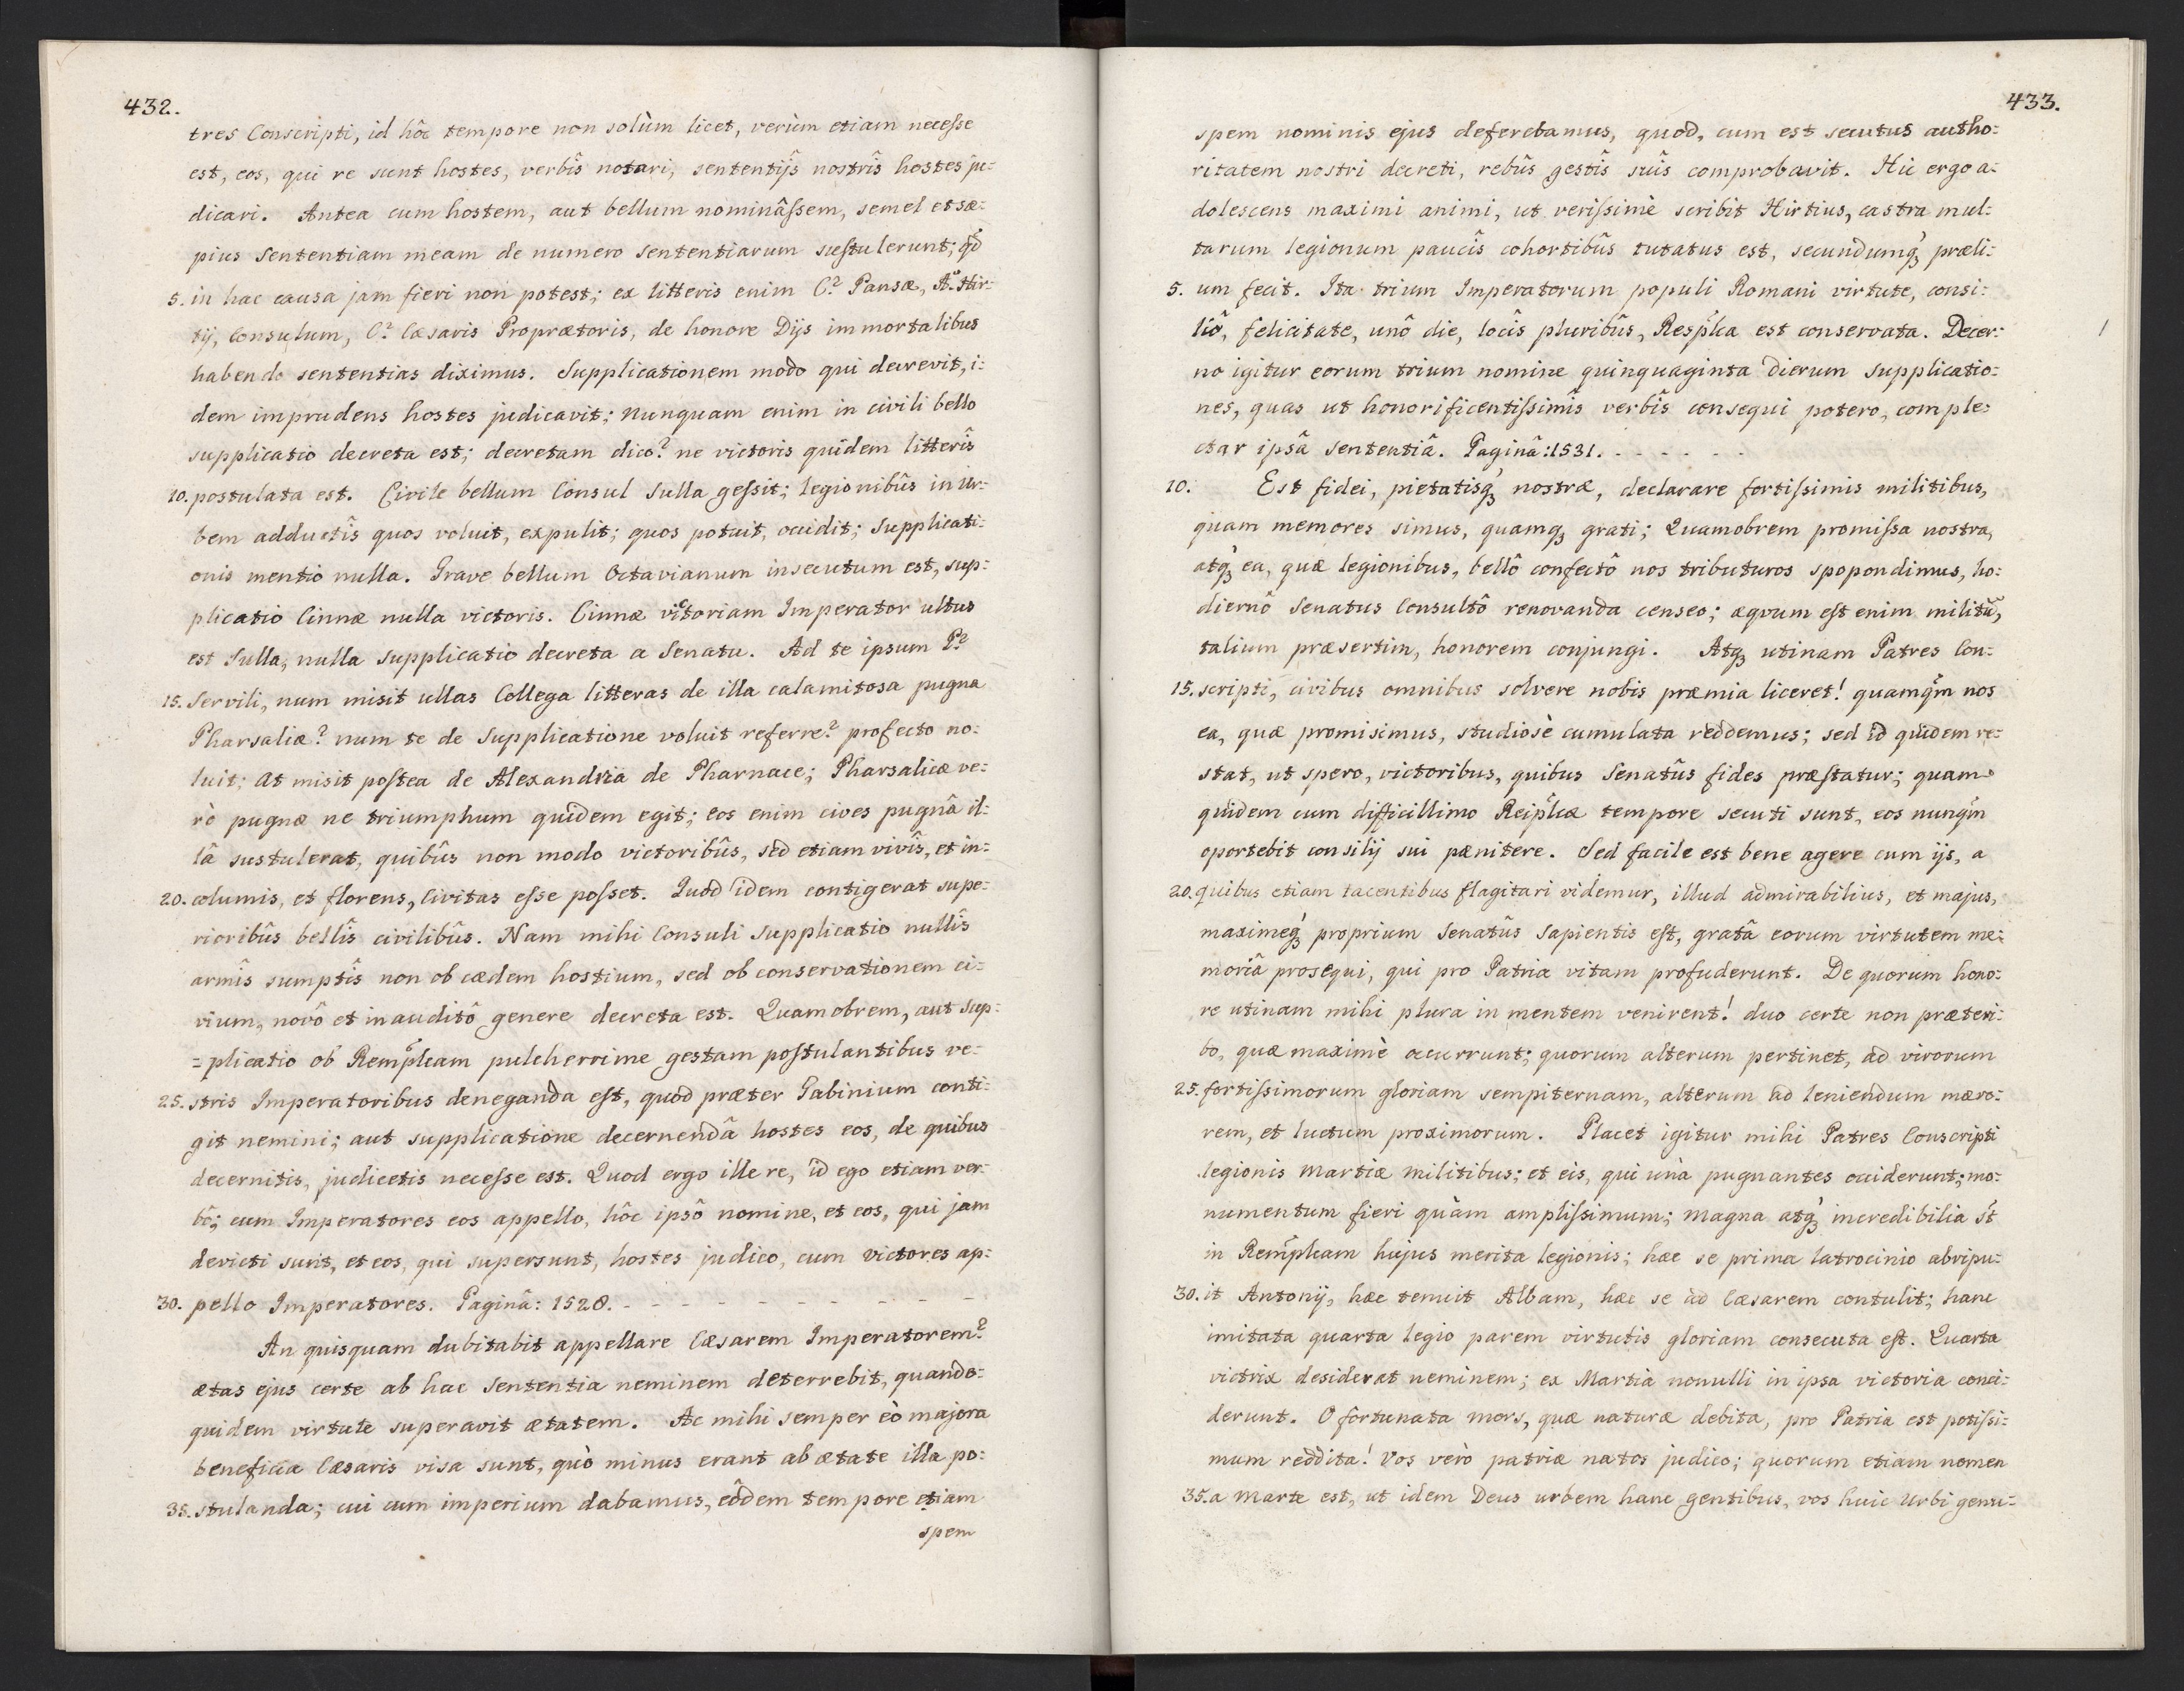 432.
tres Conscripti, id hôc tempore non solùm licet, verùm etiam necesse
est, eos, qui re sunt hostes, verbîs notari, sententijs nostrîs hostes ju=
dicari. Antea cum hostem, aut bellum nominâssem, semel et sæ=
pius Sententiam meam de numero sententiarum sustulerunt; qd
5. in hac causa jam fieri non potest; ex litteris enim C? Pansæ, A? Hir=
tij, Consulum, C? Cæsaris Proprætoris, de honore Dijs immortalibus
habendo sententias diximus. Supplicationem modo qui decrevit, i=
dem imprudens hostes judicavit; nunquam enim in civili bello
supplicatio decreta est; decretam dico? ne victoris quidem litterîs
10. postulata est. Civile bellum Consul Sulla gessit; legionibûs in Ur=
bem adductîs quos voluit, expulit; quos potuit, occidit; Supplicati=
onis mentio nulla. Grave bellum Octavianum insecutum est, sup=
plicatio Cinnæ nulla victoris. Cinnæ victoriam Imperator ultus
est Sulla, nulla supplicatio decreta a Senatu. Ad te ipsum P?
15. Servili, num misit ullas Collega litteras de illa calamitosa pugna
Pharsaliæ? num te de Supplicatione voluit referre? profecto no=
luit; at misit postea de Alexandria de Pharnace; Pharsalicæ ve=
rò pugnæ ne triumphum quidem egit; eos enim cives pugnâ il=
lâ sustulerat, quibûs non modo victoribûs, sed etiam vivîs, et in=
20. columis, et florens, Civitas esse posset. Quod idem contigerat supe=
rioribûs bellîs civilibûs. Nam mihi Consuli Supplicatio nullîs
armîs sumptîs non ob cædem hostium, sed ob conservationem ci=
vium, novô et inauditô genere decreta est. Quamobrem, aut sup=
=plicatio ob Rempl͠cam pulcherrime gestam postulantibus ve=
25. stris Imperatoribus deneganda est, quod præter Gabinium conti=
git nemini; aut supplicatione decernendâ hostes eos, de quibus
decernitis, judicetis necesse est. Quod ergo ille re, id ego etiam ver=
bô; cum Imperatores eos appello, hôc ipsô nomine, et eos, qui jam
devicti sunt, et eos, qui supersunt, hostes judico, cum victores ap=
30. pello Imperatores. Paginâ: 1528. - - - - - - - - - -
An quisquam dubitabit appellare Cæsarem Imperatorem?
ætas ejus certe ab hac Sententia neminem deterrebit, quando=
quidem virtute superavit ætatem. Ac mihi semper eò majora
beneficia Cæsaris visa sunt, quò minus erant ab ætate illa po=
35. stulanda; cui cum imperium dabamus, eôdem tempore etiam
spem
433.
spem nominis ejus deferebamus, quod, cum est secutus autho=
ritatem nostri decreti, rebûs gestîs suîs comprobavit. Hic ergo a=
dolescens maximi animi, ut verissimè scribit Hirtius, castra mul=
tarum legionum paucîs cohortibûs tutatus est, secundumq́ꝫ præli=
5. um fecit. Ita trium Imperatorum populi Romani virtute, consi=
liô, felicitate, unô die, locîs pluribûs, Respl͠ca est conservata. Decer=
no igitur eorum trium nomine quinquaginta dierum Supplicatio=
nes, quas ut honorificentissimîs verbîs consequi potero, comple=
ctar ipsâ Sententiâ. Paginâ: 1531. - - - - - -
10. Est fidei, pietatisq́ꝫ nostræ, declarare fortissimis militibus,
quam memores simus, quamqꝫ grati; Quamobrem promissa nostra,
atq́ꝫ ea, quæ legionibus, bellô confectô nos tributuros spopondimus, ho=
diernô Senatus Consultô renovanda censeo; æqvum est enim militũ,
talium præsertim, honorem conjungi. Atqꝫ utinam Patres Con=
15. scripti, civibus omnibus solvere nobis præmia liceret! quamq̃m nos
ea, quæ promisimus, studiosè cumulata reddemus; sed id quidem re=
stat, ut spero, victoribus, quibus Senatûs fides præstatur; quam
quidem cum difficillimo Reipl͠cæ tempore secuti sunt, eos nunq̃m
oportebit consilij sui pænitere. Sed facile est bene agere cum ijs, a
20. quibus etiam tacentibus flagitari videmur, illud admirabilius, et majus,
maximeq́ꝫ proprium Senatûs Sapientis est, gratâ eorum virtutem me=
moriâ prosequi, qui pro Patria vitam profuderunt. De quorum hono=
re utinam mihi plura in mentem venirent! duo certe non præteri=
bo, quæ maximè occurrunt; quorum alterum pertinet, ad virorum
25. fortissimorum gloriam sempiternam, alterum ad leniendum mæro=
rem, et luctum proximorum. Placet igitur mihi Patres Conscripti
legionis Martiæ militibus; et eis, qui unà pugnantes occiderunt; mo=
numentum fieri quàm amplissimum; magna atq́ꝫ incredibilia st̃
in Rempl͠cam hujus merita legionis; hæc se prima latrocinio abripu=
30. it Antonij, hæc tenuit Albam, hæc se ad Cæsarem contulit; hanc
imitata quarta legio parem virtutis gloriam consecuta est. Quarta
victrix desiderat neminem; ex Martia nonulli in ipsa victoria conci=
derunt. O fortunata mors, quæ naturæ debita, pro Patria est potissi=
mum reddita! Vos verò patriæ natos judico; quorum etiam nomen
35. a Marte est, ut idem Deus urbem hanc gentibus, vos huic Urbi genui=